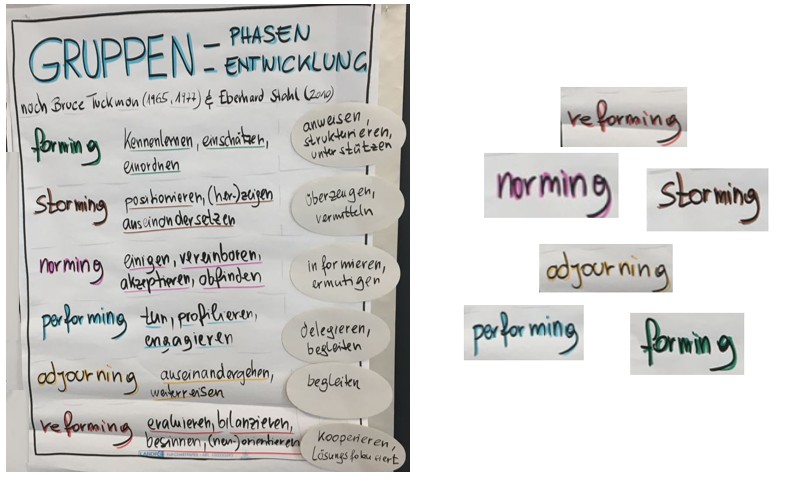 GRUPPEN = PHASEN
ENTWICKLUNG
nach Bruce Tuckman (1965, 1977) & Eberhard Stahl (2010)
forming
Kennenlernen, einschätzen,
einordnen
anweisen,
strukturieren,
unterstützen
storming
positionieren, (her-)zeigen
auseinandersetzen
überzeugen,
vermitteln
norming
einigen, vereinbaren,
akzeptieren, abfinden
informieren,
ermutigen
performing
tun, profilieren,
engagieren
delegieren,
begleiten
adjourning
auseinandergehen,
weiterreisen
begleiten
reforming
evaluieren, bilanzieren,
besinnen, (neu-)orientieren
Kooperieren,
Lösungsfokussiert
reforming
norming
storming
adjourning
performing
forming